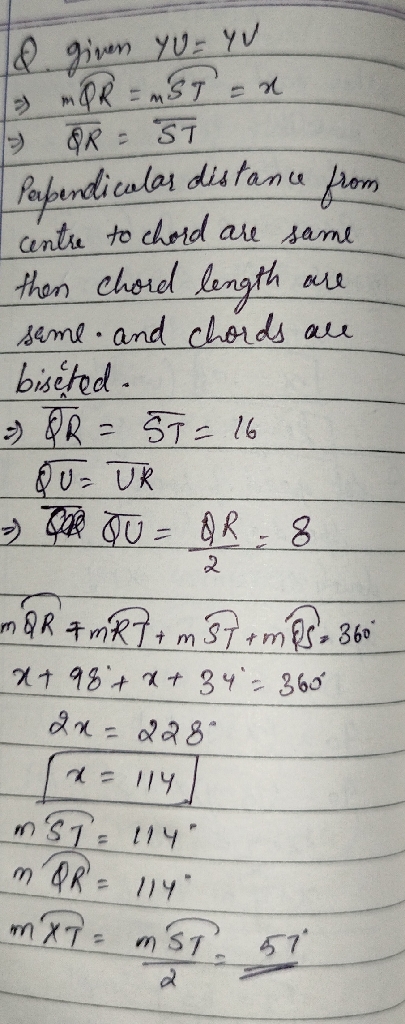 Q. given YU = YV
⇒ m QR = m ST = x
⇒ QR = ST
Perpendicular distance from
centre to chord are same
then chord length are
same. and chords are
biscted.
⇒ QR = ST = 16
QU = UR
⇒ QU = QR/2 = 8
m QR + m RT + m ST + m QS = 360°
x + 98° + x + 34° = 360°
2x = 228°
x = 114
m ST = 114°
m QR = 114°
m XT = m ST/2 = 57°